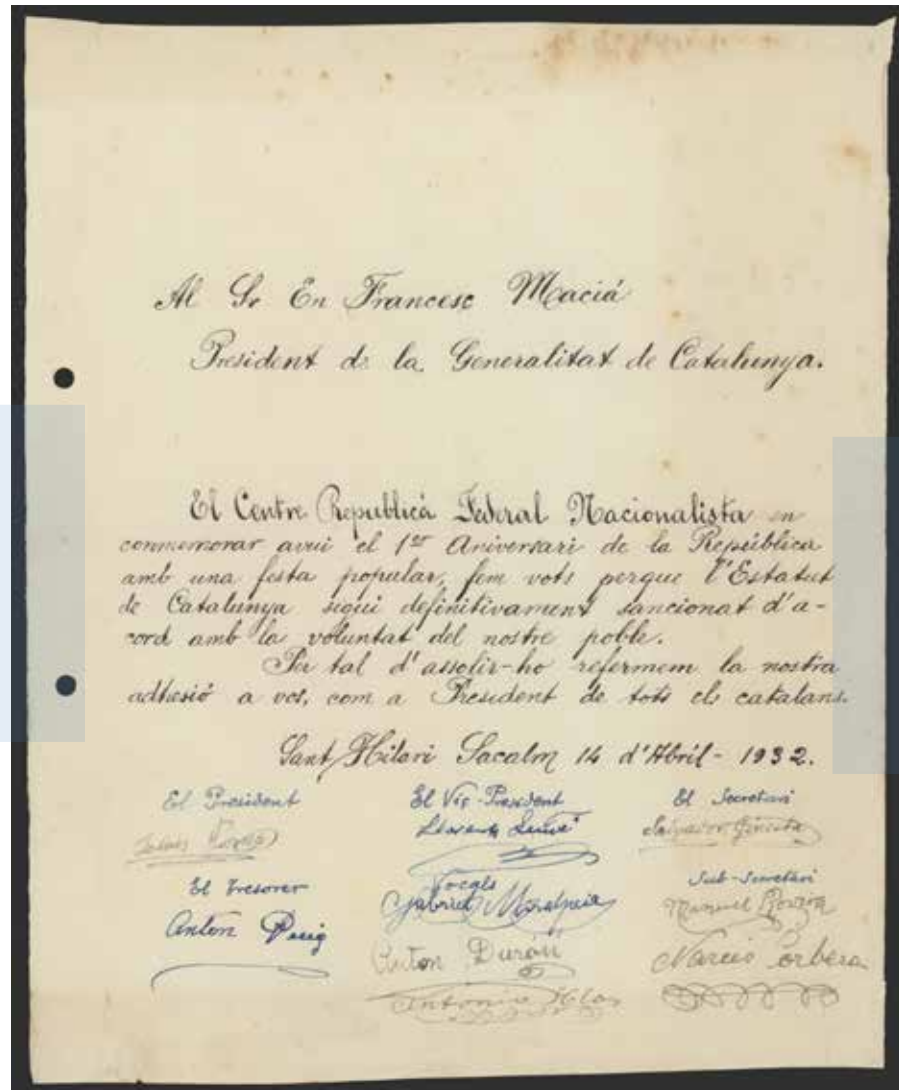 Al Sr En Francesc Maciá
President de la Generalitat de Catalunya.
El Centre Republicá Federal Nacionalista en
conmemorar avui el 1er Aniversari de la República
amb una festa popular, fem vots perque l'Estatut
de Catalunya sigui definitivament sancionat d'a-
cord amb la voluntat del nostre poble.
Per tal d'assolir-ho refermem la nostra
adhesió a vos, com a President de tots els catalans.
Sant Hilari Sacalm 14 d'Abril - 1932.
El President El Vis-President El Secretari
Llorens Salvador Ginesta
El Tresorer Vocals Sub-Secretari
Anton Puig Gabriel Manuel Rovira
Anton Durán Narcís
Antonio